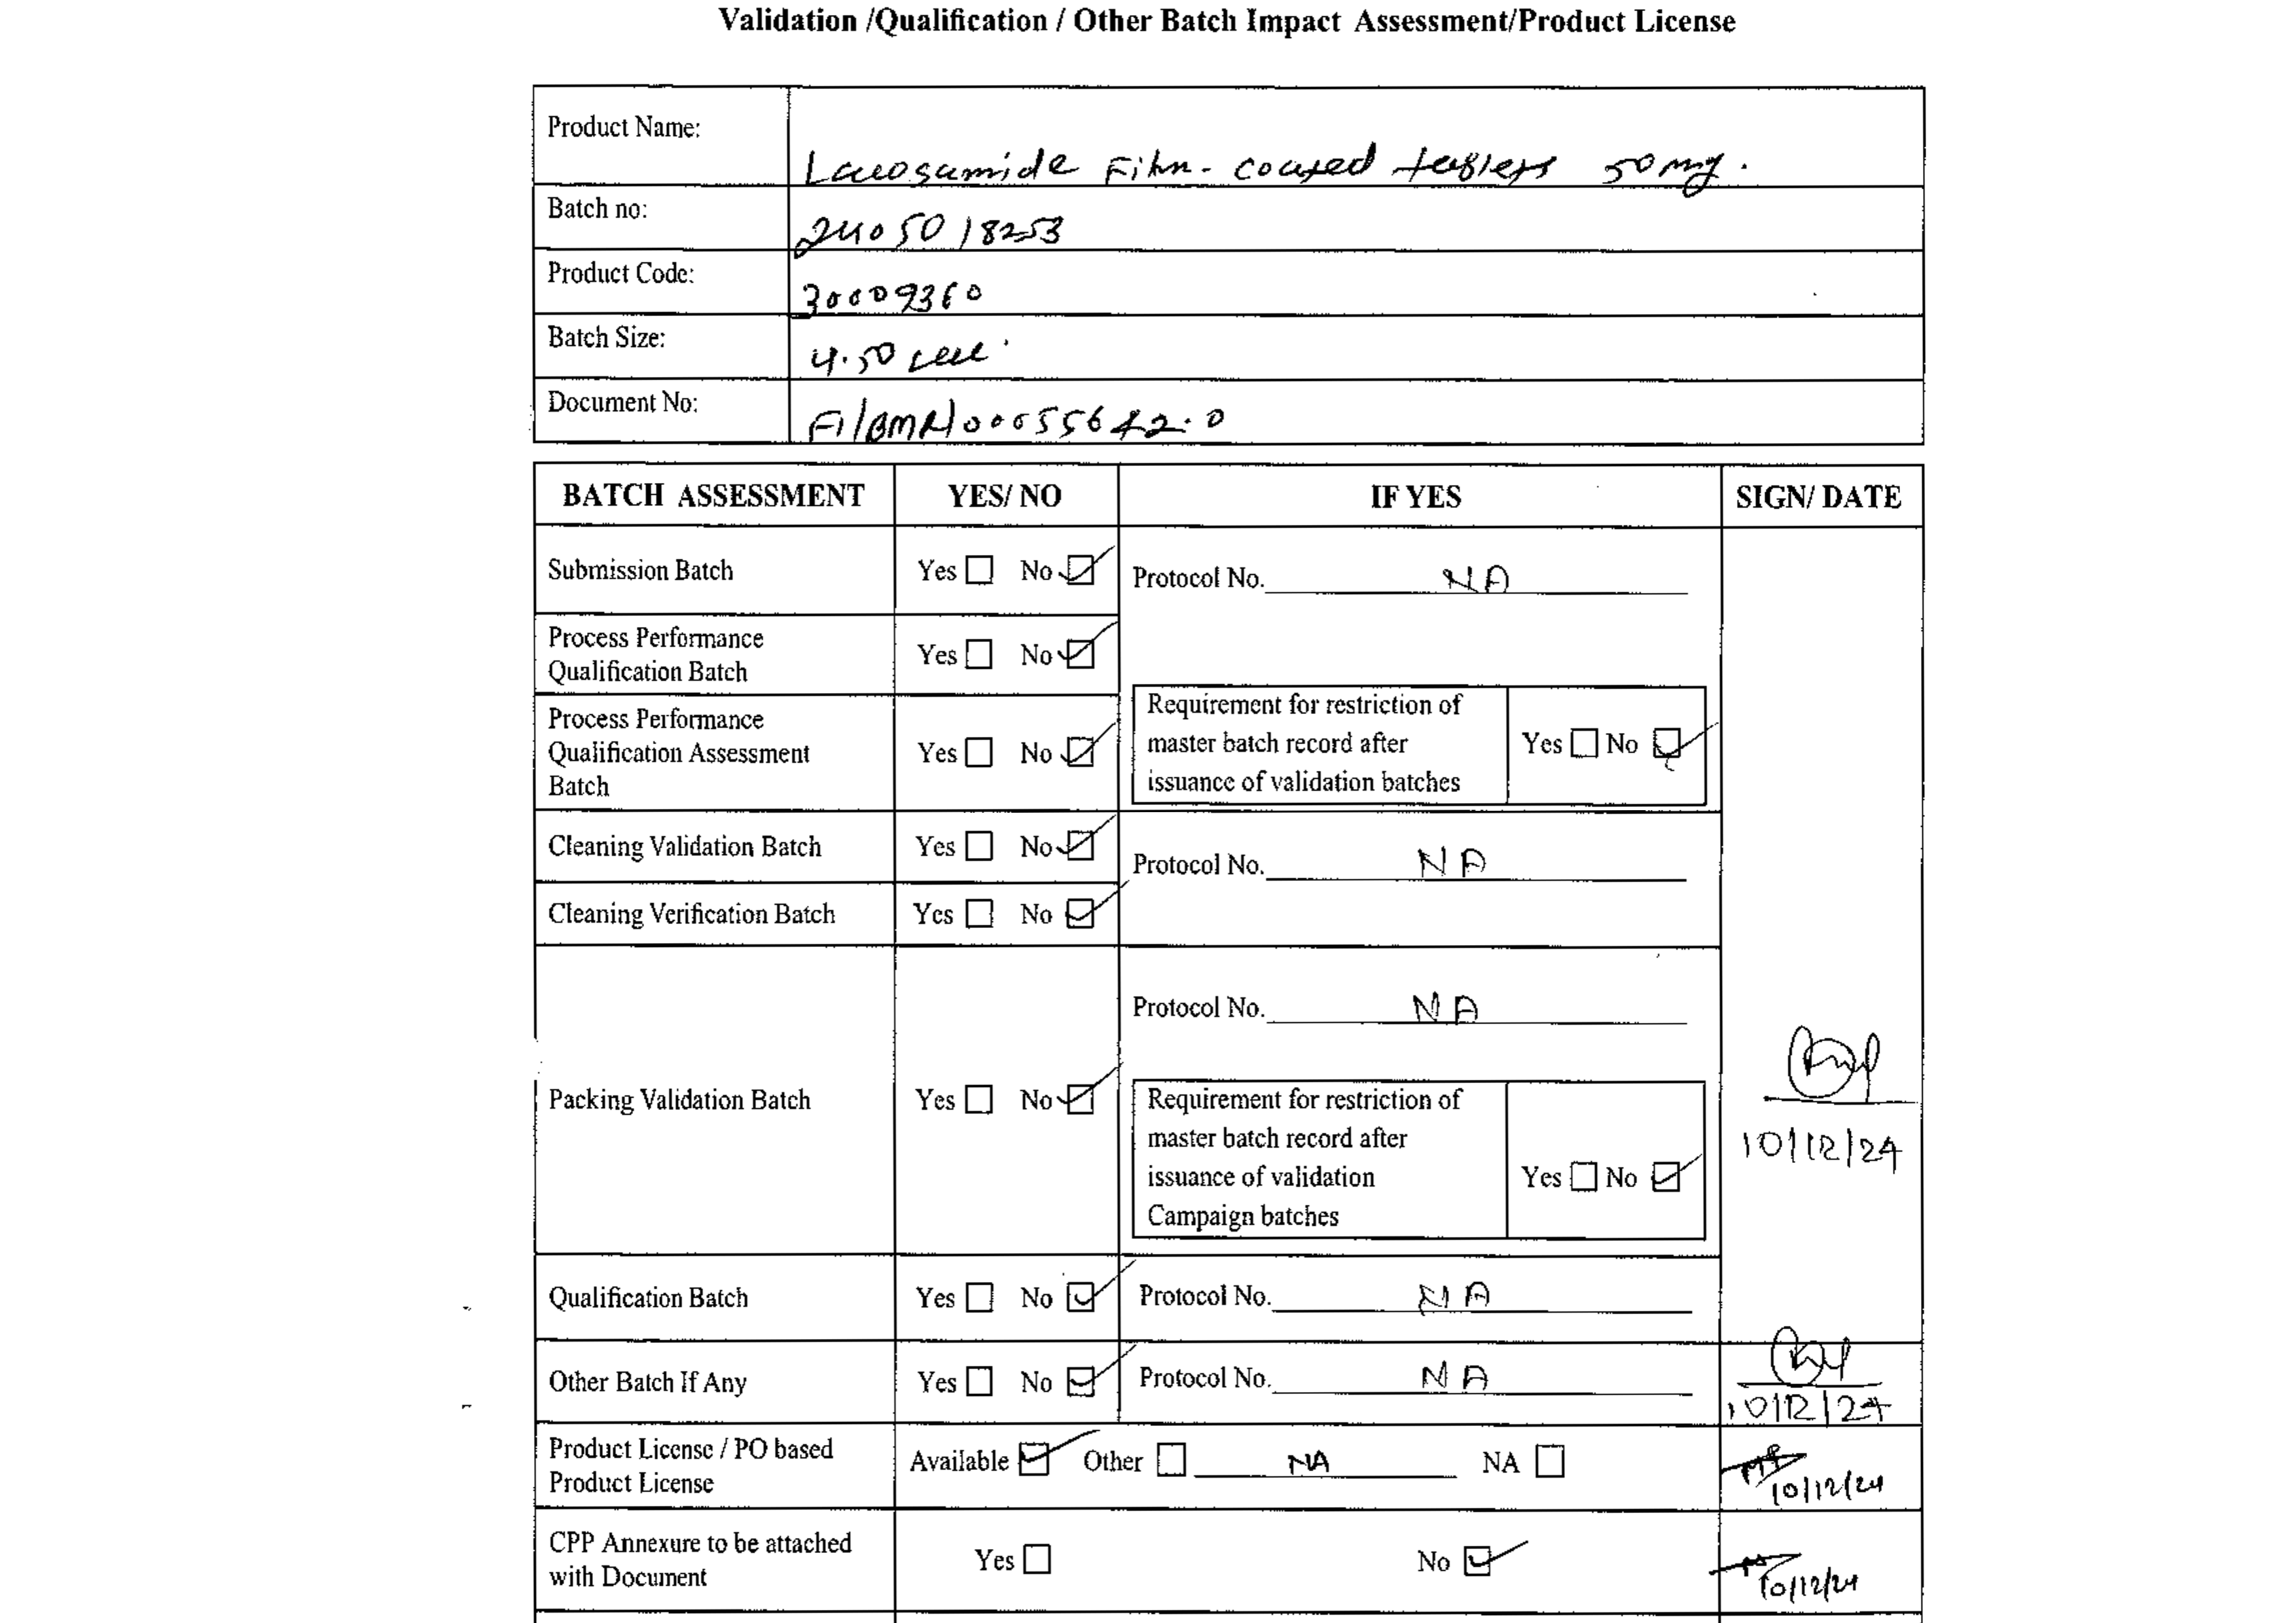 Validation /Qualification / Other Batch Impact Assessment/Product License
Product Name:
Lacosamide Film-coated tablets 50 mg.
Batch no:
2405018253
Product Code:
30009360
Batch Size:
4.50
Document No:
BATCH ASSESSMENT YES/ NO IF YES SIGN/ DATE
Submission Batch Yes No Protocol No. NA
Process Performance
Qualification Batch Yes No
Process Performance
Qualification Assessment
Batch Yes No
Requirement for restriction of
master batch record after
issuance of validation batches Yes No
Cleaning Validation Batch Yes No Protocol No. NA
Cleaning Verification Batch Yes No
Protocol No. NA
Packing Validation Batch Yes No
Requirement for restriction of
master batch record after
issuance of validation
Campaign batches Yes No
10/12/24
Qualification Batch Yes No Protocol No. NA
Other Batch If Any Yes No Protocol No. NA
10/12/24
Product License / PO based
Product License Available Other NA NA
10/12/24
CPP Annexure to be attached
with Document Yes No
10/12/24